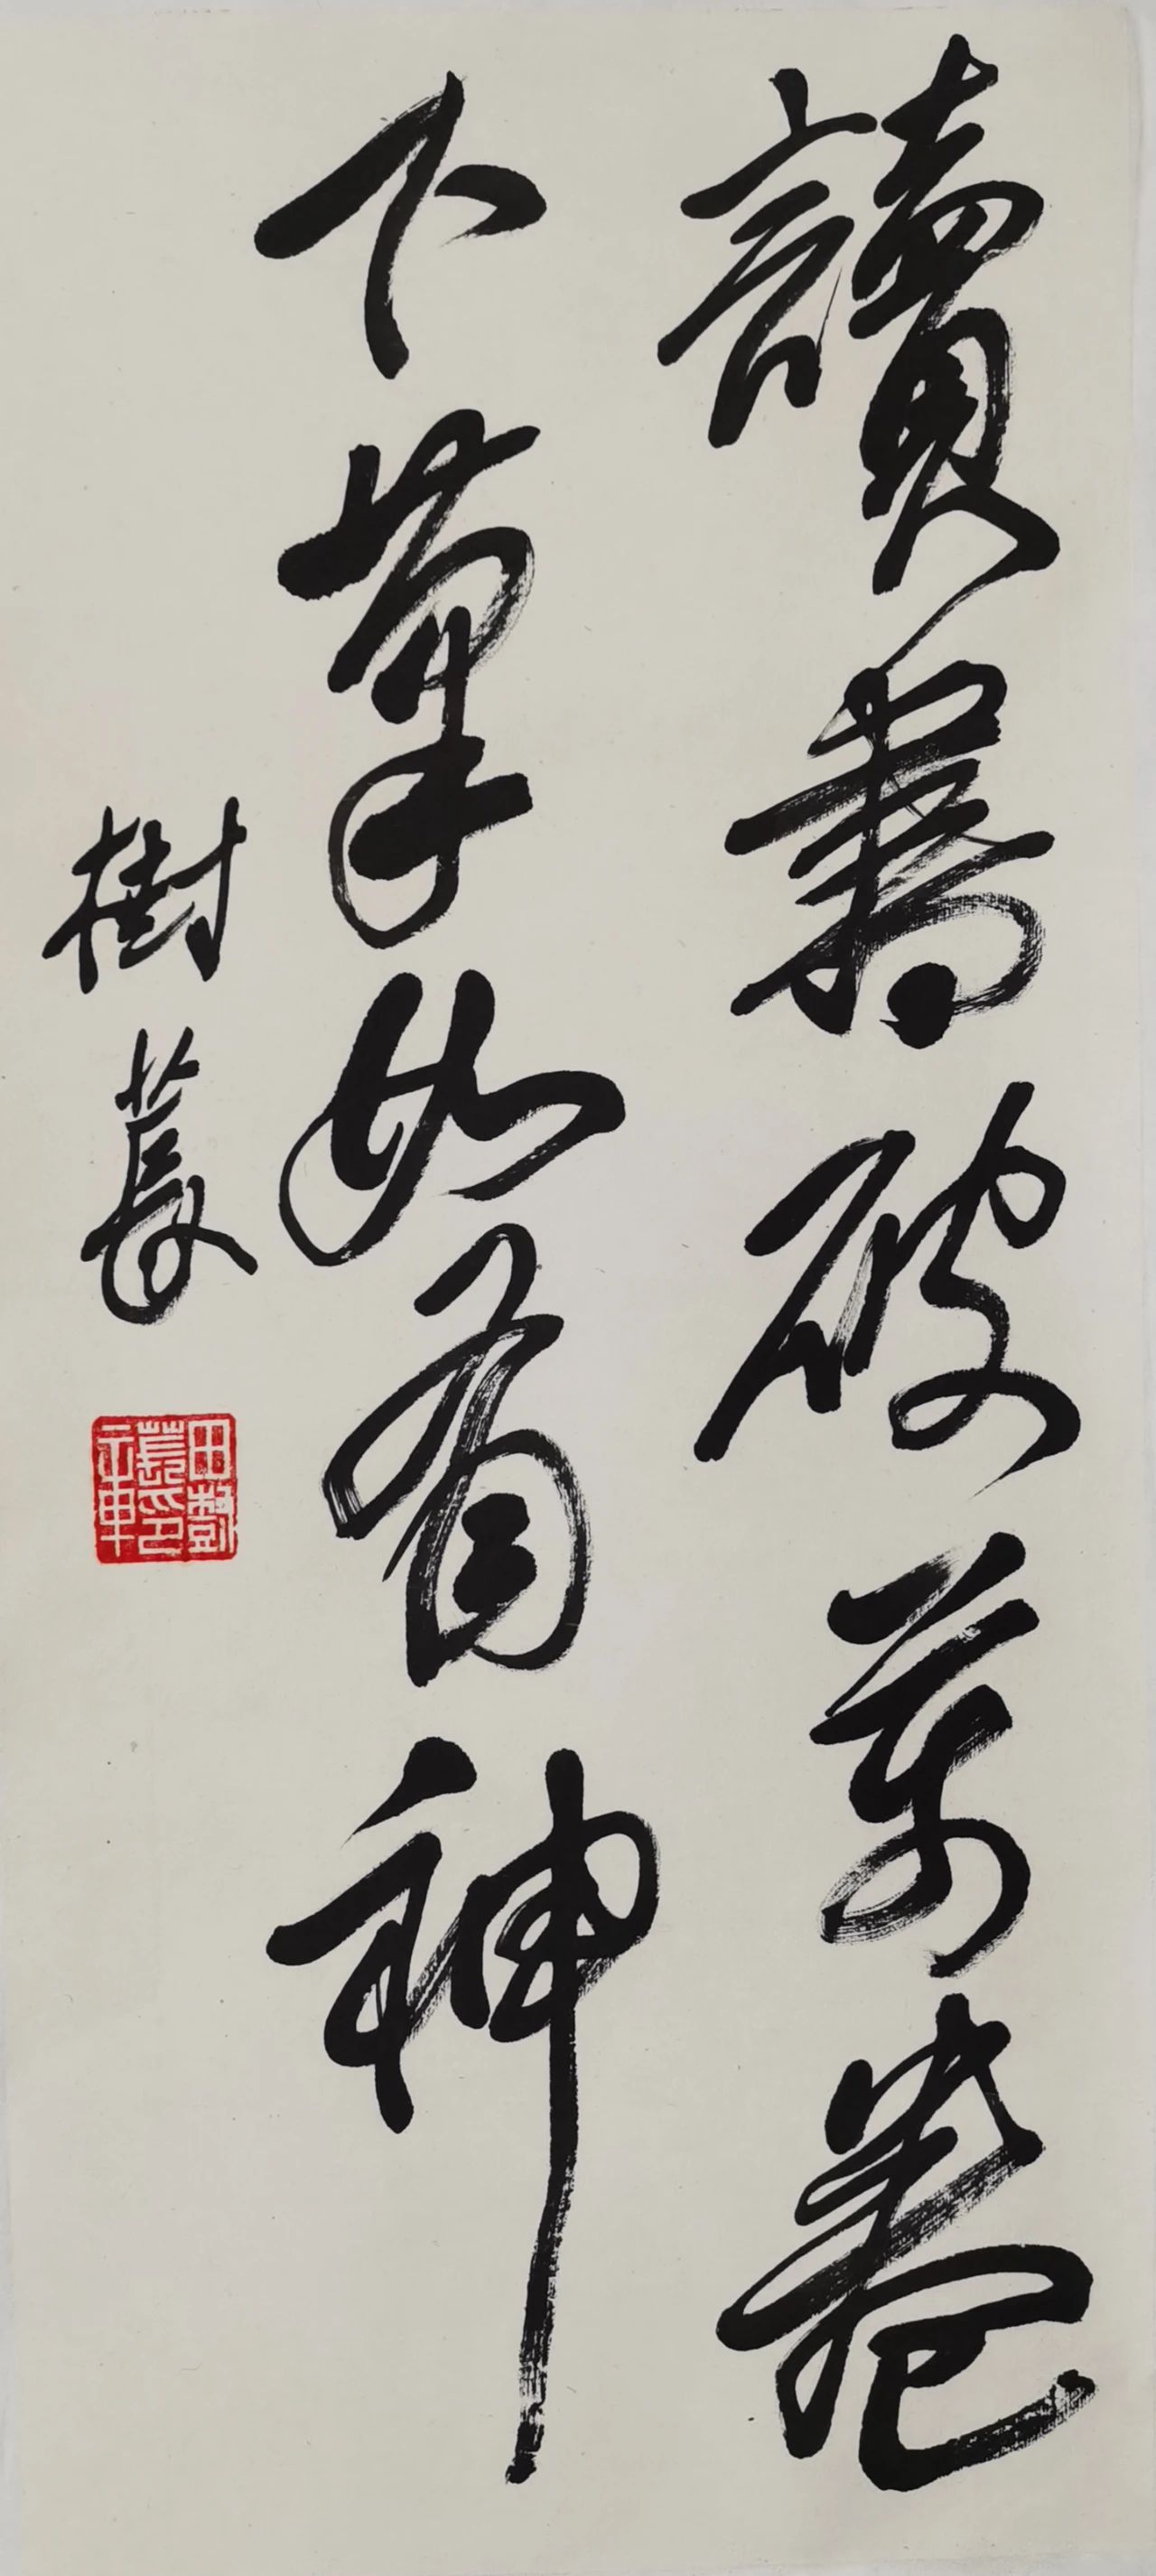 讀書破萬卷
下筆如有神
樹萇
田樹萇印